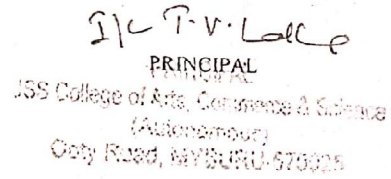 I/C T.V.
PRINCIPAL
PRINCIPAL
JSS College of Arts, Commerce & Science
(Autonomous)
Ooty Road, MYSURU-570025